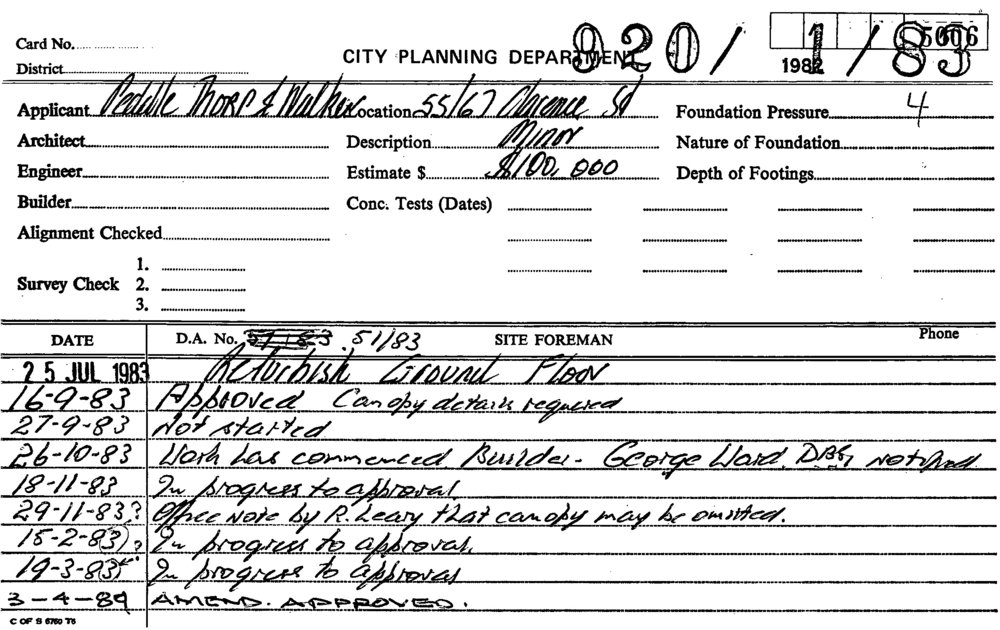 5006
Card No.
CITY PLANNING DEPARTMENT 920/1/83
District 1982
Applicant Peddle Thorp & Walker Location 55/67 Clarence St Foundation Pressure 4
Architect Description Minor Nature of Foundation
Engineer Estimate $ $100,000 Depth of Footings
Builder Conc. Tests (Dates)
Alignment Checked
1.
Survey Check 2.
3.
DATE D.A. No. 51/83 SITE FOREMAN Phone
25 JUL 1983 Refurbish Ground Floor
16-9-83 Approved Canopy details required
27-9-83 Not started
26-10-83 Work has commenced Builder - George Ward. notified
18-11-83 In progress to approval
29-11-83? Office note by R. Leary that canopy may be omitted.
15-2-83)? In progress to approval.
19-3-83 In progress to approval
3-4-84 AMEND. APPROVED.
C OF S 6760 T6